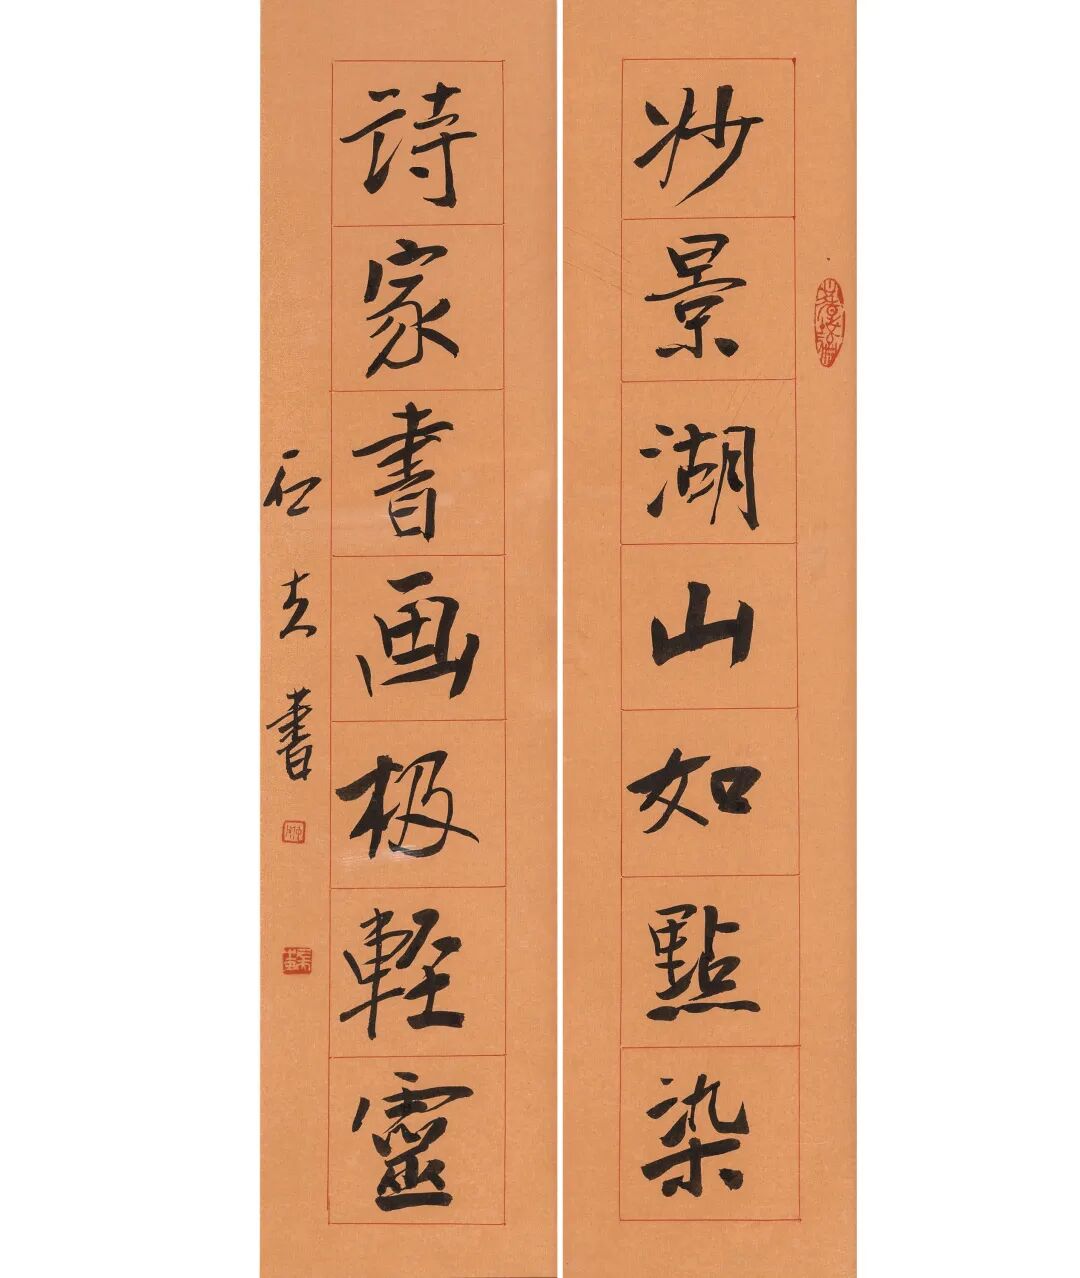 妙景湖山如點染
詩家書画极輕靈
書